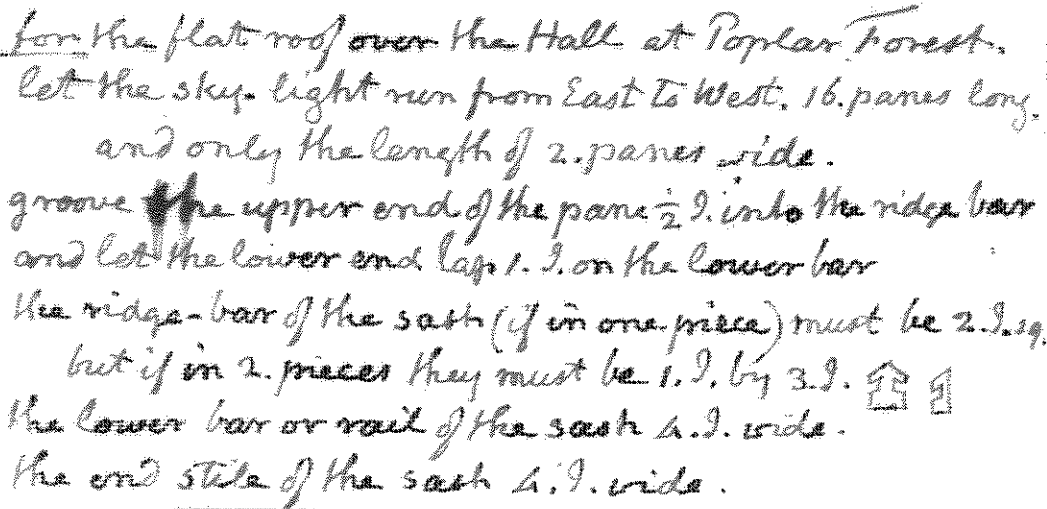 for the flat roof over the Hall at Poplar Forest.
let the sky-light run from East to West. 16. panes long.
and only the length of 2. panes wide.
groove the upper end of the pane ½ I. into the ridge bar
and let the lower end lap 1. I. on the lower bar
the ridge-bar of the sash (if in one piece) must be 2. I. sq.
but if in 2. pieces they must be 1. I. by 3. I.
the lower bar or rail of the sash 4. I. wide.
the end stile of the sash 4. I. wide.